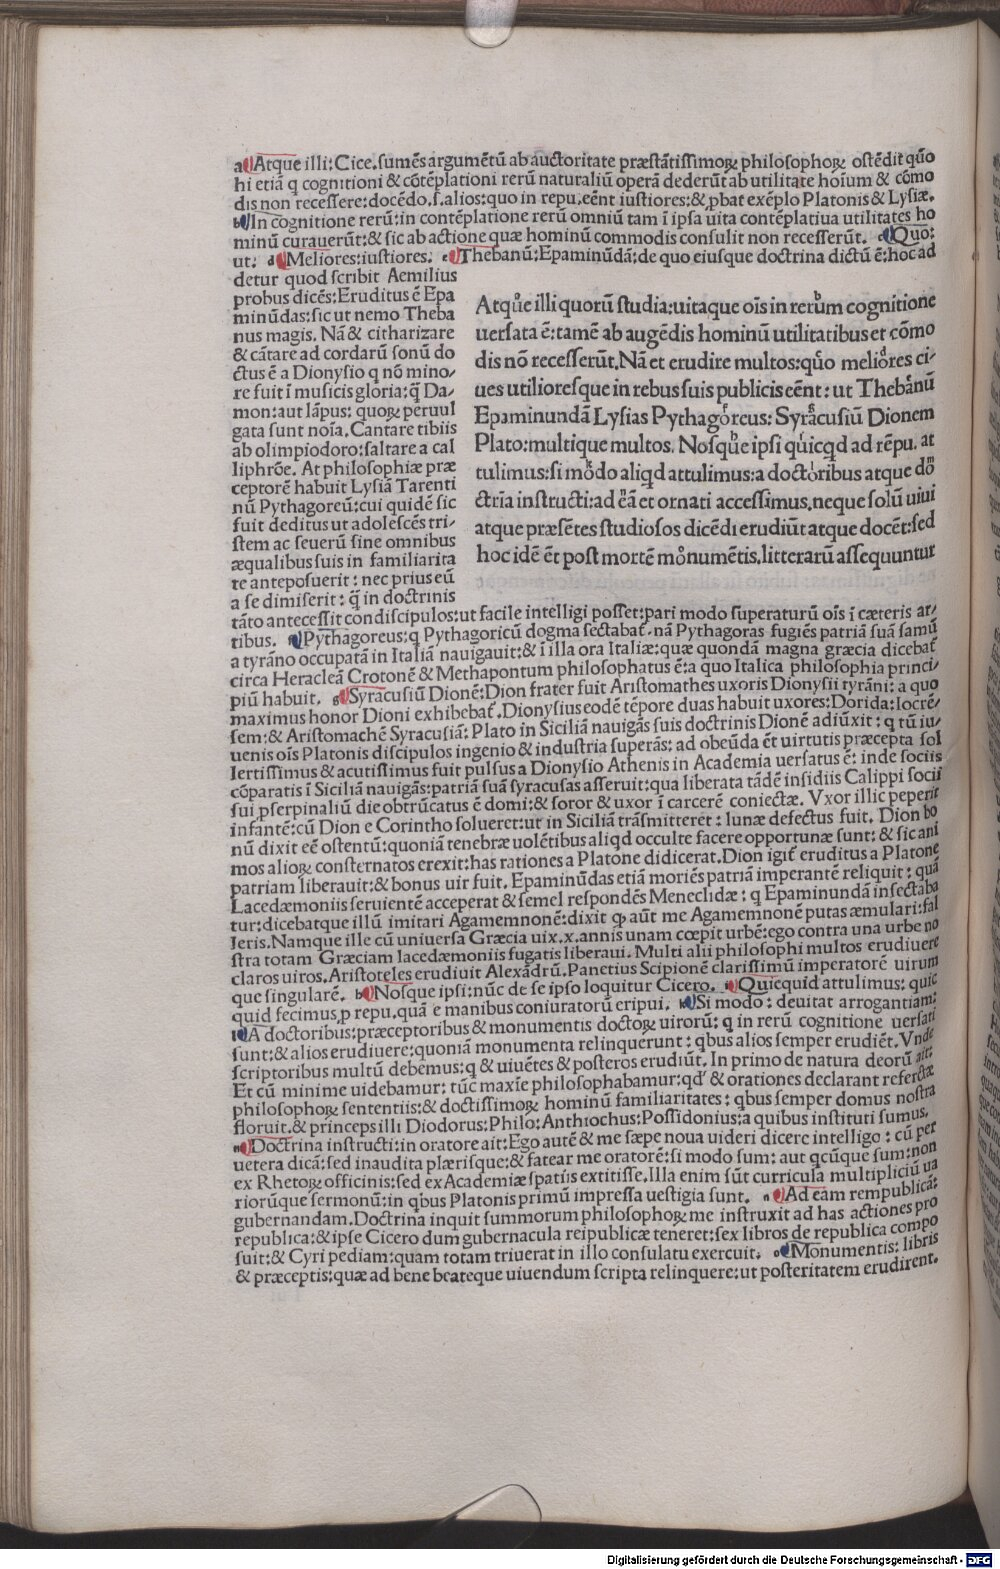 a Atque illi: Cice. sumēs argumētū ab auctoritate præstātissimoꝝ philosophoꝝ ostēdit quō
hi etiā q cognitioni & cōtēplationi rerū naturaliū operā dederūt ab utilitate hoīum & cōmo
dis non recessere: docēdo. s. alios: quo in repu. eēnt iustiores: & ꝓbat exēplo Platonis & Lysiæ.
b In cognitione rerū: in contēplatione rerū omniū tam ī ipsa uita contēplatiua utilitates ho
minū curauerūt: & sic ab actione quæ hominū commodis consulit non recesserūt. c Quo:
ut: d Meliores: iustiores. e Thebanū: Epaminūdā: de quo eiusque doctrina dictū ē: hoc ad
detur quod scribit Aemilius
probus dicēs: Eruditus ē Epa
minūdas: sic ut nemo Theba
nus magis. Nā & citharizare
& cātare ad cordarū sonū do
ctus ē a Dionysio q nō mino/
re fuit ī musicis gloria: q̄ Da/
mon: aut lāpus: quoꝝ peruul
gata sunt noīa. Cantare tibiis
ab olimpiodoro: saltare a cal
liphrōe. At philosophiæ præ
ceptorē habuit Lysiā Tarenti
nū Pythagoreū: cui quidē sic
fuit deditus ut adolescēs tri/
stem ac seuerū sine omnibus
æqualibus suis in familiarita
te anteposuerit: nec prius eū
a se dimiserit: q̄ in doctrinis
Atque illi quorū studia: uitaque oīs in rerum cognitione
uersata ē: tamē ab augēdis hominū utilitatibus et cōmo
dis nō recesserūt. Nā et erudire multos: quo meliores ci/
ues utiliores que in rebus suis publicis eēnt: ut Thebanū
Epaminundā Lysias Pythagoreus: Syracusiū Dionem
Plato: multique multos. Nosque ipsi quicqd ad rēpu. at
tulimus: si modo aliqd attulimus: a doctoribus atque do
ctria instructi: ad eā et ornati accessimus. neque solū uiui
atque præsētes studiosos dicēdi erudiūt atque docēt: sed
hoc idē et post mortē monumētis. litterarū assequuntur
tāto antecessit condiscipulos: ut facile intelligi posset: pari modo superaturū oīs ī cæteris ar/
tibus. f Pythagoreus: q Pythagoricū dogma sectabat. nā Pythagoras fugiēs patriā suā samū
a tyrāno occupatā in Italiā nauigauit: & ī illa ora Italiæ: quæ quondā magna græcia dicebat
circa Heracleā Crotonē & Methapontum philosophatus ē: a quo Italica philosophia princi/
piū habuit. g Syracusiū Dionē: Dion frater fuit Aristomathes uxoris Dionysii tyrāni: a quo
maximus honor Dioni exhibebat. Dionysius eodē tēpore duas habuit uxores: Dorida: locrē/
sem: & Aristomachē Syracusiā: Plato in Siciliā nauigās suis doctrinis Dionē adiūxit: q tū iu/
uenis oīs Platonis discipulos ingenio & industria superās: ad obeūda ēt uirtutis præcepta sol
lertissimus & acutissimus fuit pulsus a Dionysio Athenis in Academia uersatus ē: inde sociis
cōparatis ī Siciliā nauigās: patriā suā syracusas asseruit: qua liberata tādē insidiis Calippi socii
sui ꝓserpinaliū die obtrūcatus ē domi: & soror & uxor ī carcerē coniectæ. Vxor illic peperit
infantē: cū Dion e Corintho solueret: ut in Siciliā trāsmitteret: lunæ defectus fuit. Dion bo
nū dixit eē ostentū: quoniā tenebræ uolētibus aliqd occulte facere opportunæ sunt: & sic ani
mos alioꝝ consternatos erexit: has rationes a Platone didicerat. Dion igit eruditus a Platone
patriam liberauit: & bonus uir fuit. Epaminūdas etiā moriēs patriā imperantē reliquit: quā
Lacedæmoniis seruientē acceperat & semel respondēs Meneclidæ: q Epaminundā insectaba
tur: dicebatque illū imitari Agamemnonē: dixit ꝙ aūt me Agamemnonē putas æmulari: fal
leris. Namque ille cū uniuersa Græcia uix. x. annis unam cœpit urbē: ego contra una urbe no
stra totam Græciam lacedæmoniis fugatis liberaui. Multi alii philosophi multos erudiuere
claros uiros. Aristoteles erudiuit Alexādrū. Panetius Scipionē clarissimū imperatorē uirum
que singularē. h Nosque ipsi: nūc de se ipso loquitur Cicero. i Quicquid attulimus: quic
quid fecimus ꝓ repu. quā e manibus coniuratorū eripui. k Si modo: deuitat arrogantiam:
l A doctoribus: præceptoribus & monumentis doctoꝝ uirorū: q in rerū cognitione uersati
sunt: & alios erudiuere: quoniā monumenta relinquerunt: qbus alios semper erudiēt. Vnde
scriptoribus multū debemus: q & uiuētes & posteros erudiūt. In primo de natura deorū ait:
Et cū minime uidebamur: tūc maxīe philosophabamur: qd & orationes declarant refertæ
philosophoꝝ sententiis: & doctissimoꝝ hominū familiaritates: qbus semper domus nostra
floruit. & princeps illi Diodorus: Philo: Anthrochus: Possidonius: a quibus instituti sumus.
m Doctrina instructi: in oratore ait: Ego autē & me sæpe noua uideri dicere intelligo: cū per
uetera dicā: sed inaudita plærisque: & fatear me oratorē: si modo sum: aut qcūque sum: non
ex Rhetoꝝ officinis: sed ex Academiæ spatiis extitisse. Illa enim sūt curricula multipliciū ua
riorūque sermonū: in qbus Platonis primū impressa uestigia sunt. n Ad eam rempublicā:
gubernandam. Doctrina inquit summorum philosophoꝝ me instruxit ad has actiones pro
republica: & ipse Cicero dum gubernacula reipublicæ teneret: sex libros de republica compo
suit: & Cyri pediam: quam totam triuerat in illo consulatu exercuit. o Monumentis: libris
& præceptis: quæ ad bene beateque uiuendum scripta relinquere: ut posteritatem erudirent.
Digitalisierung gefördert durch die Deutsche Forschungsgemeinschaft - DFG